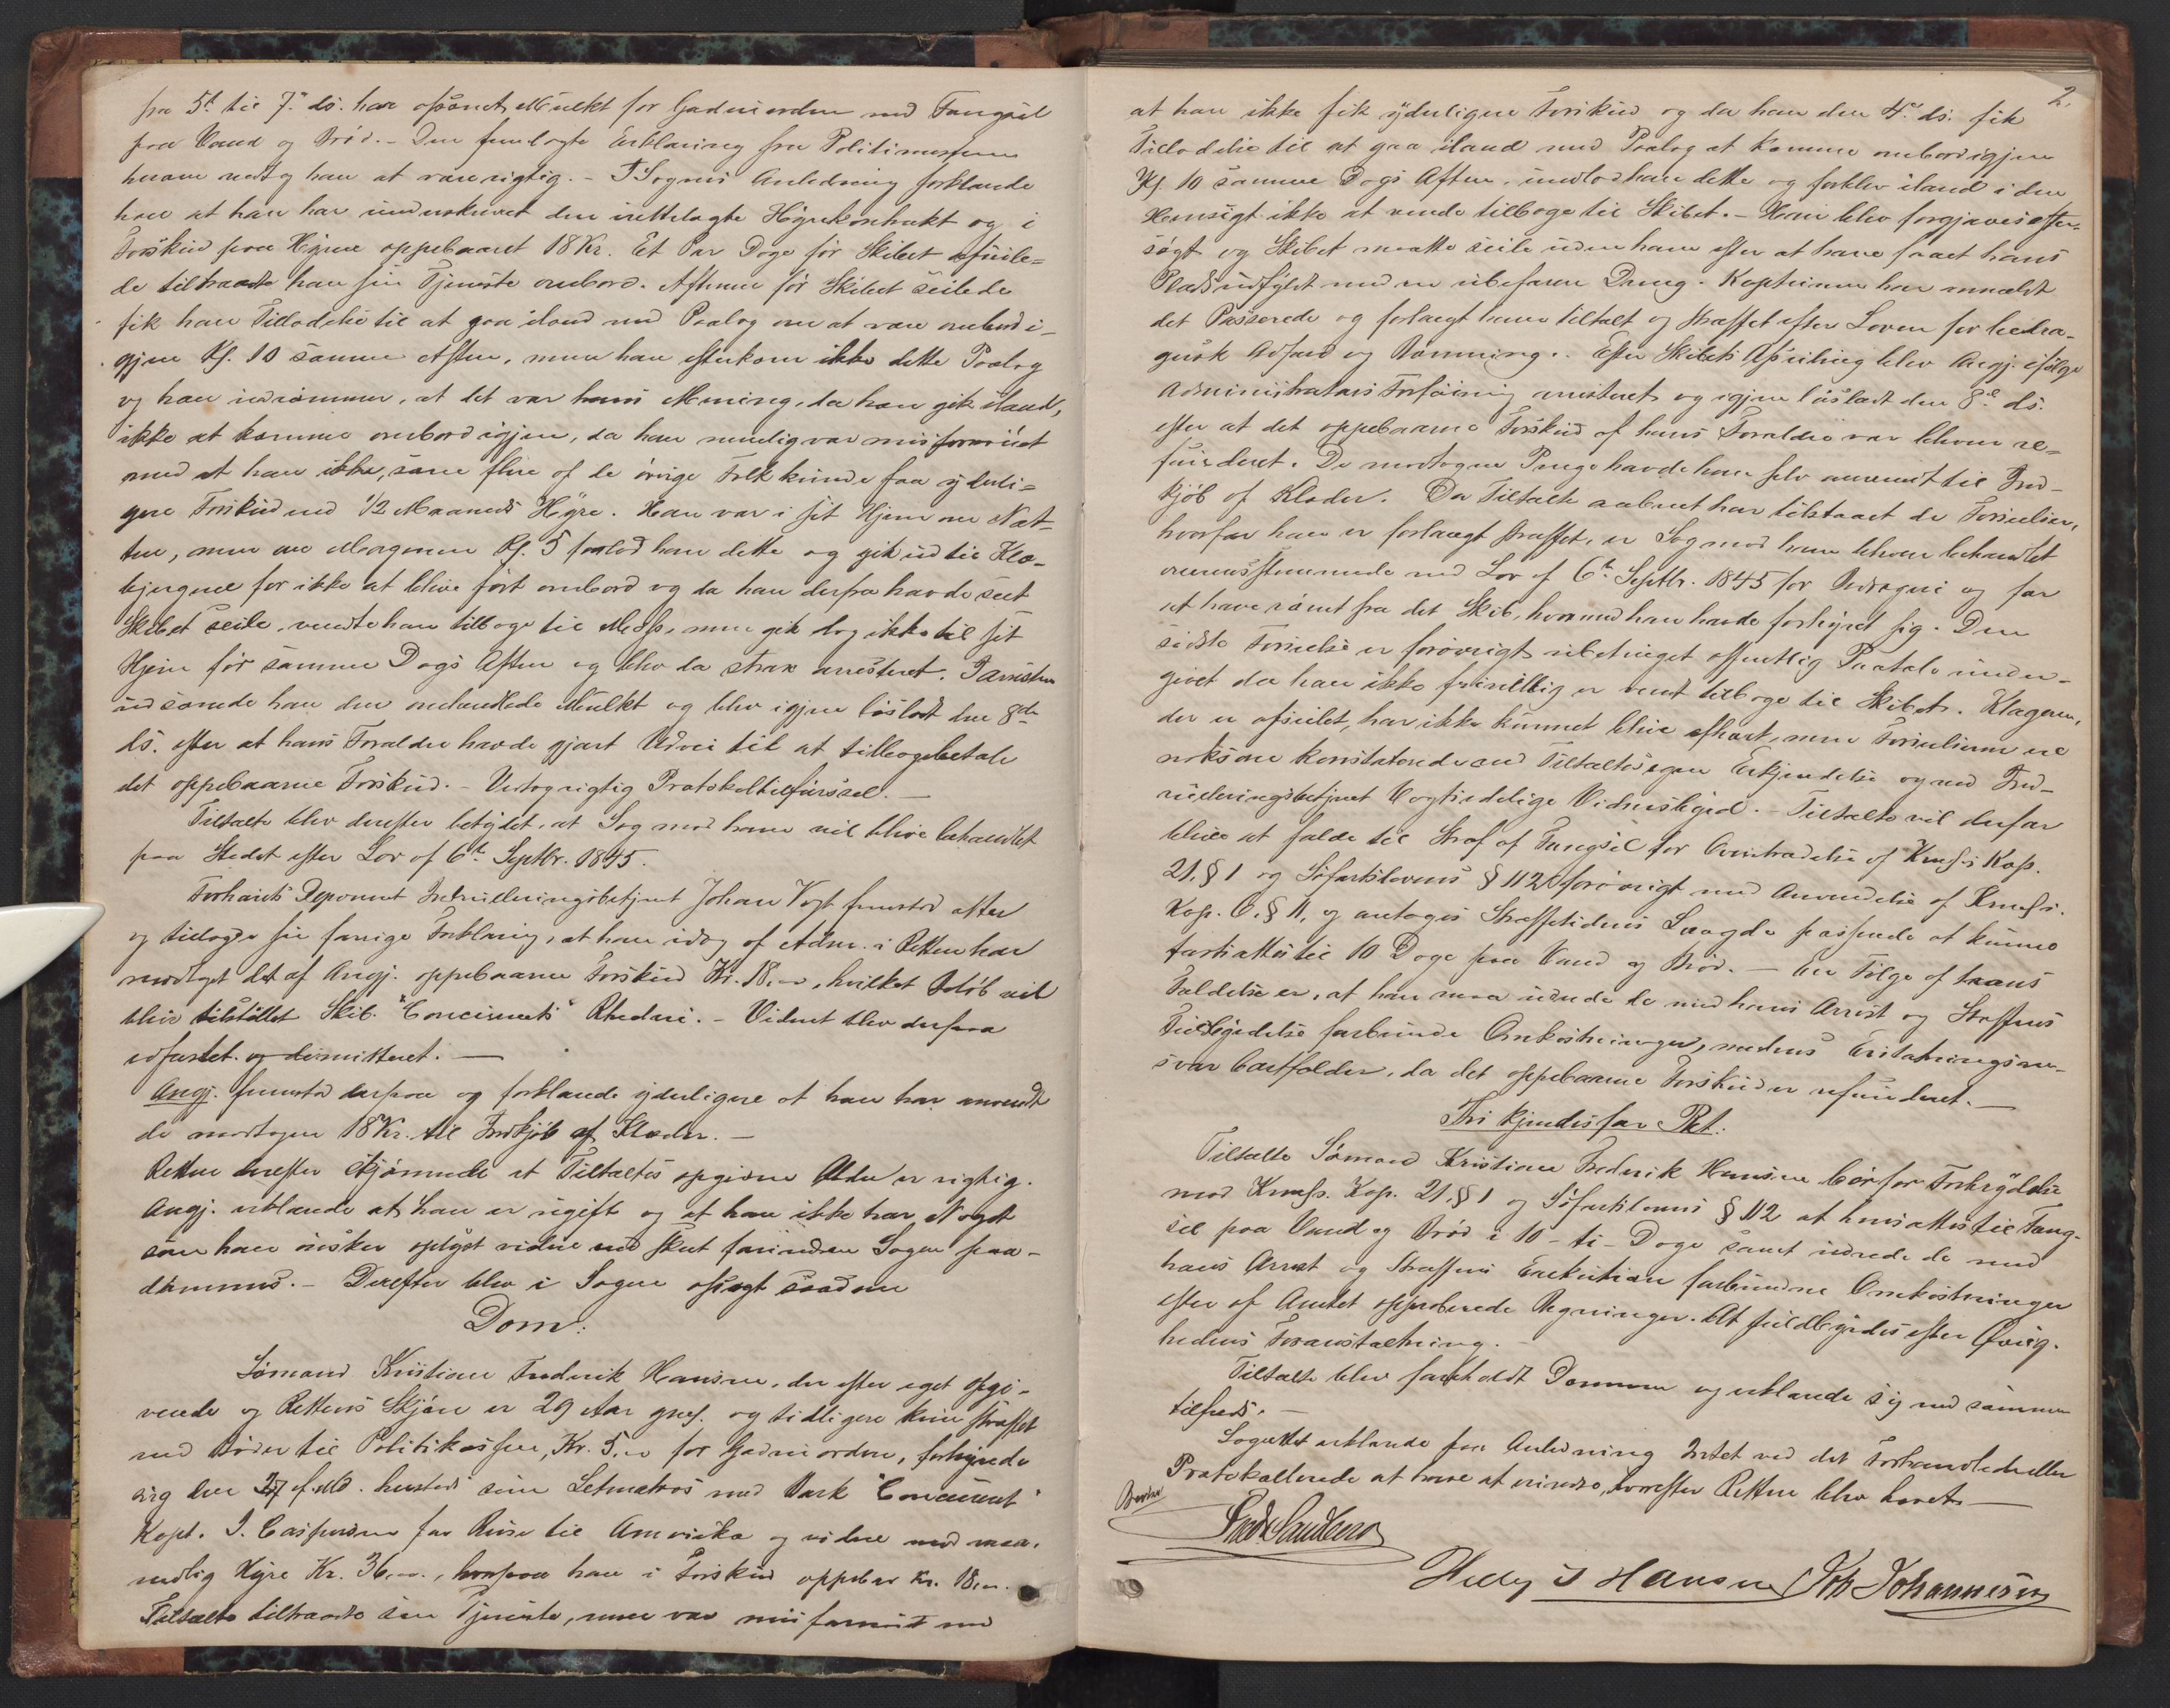 fra 5t til 7. ds. har afsonet Mulkt for Gadeuorden med Fængsel
paa Vand og Brød. – Den fremlagte Erklæring fra Politimesteren
herom vedtog han at være rigtig. – I Sagens Anledning forklarede
han at han har underskrevet den irettelagte Hyrekontrakt og i
Forskud paa Hyren oppebaaret 18 Kr. Et Par Dage før Skibet afseile-
de tiltraadte han sin Tjeneste ombord. Aftenen før Skibet seilede
fik han Tilladelse til at gaa iland med Paalæg om at være ombord i-
gjen Kl. 10 samme Aften, men han efterkom ikke dette Paalæg
og han indrømmer, at det var hans Mening, da han gik iland,
ikke at komme ombord igjen, da han nemlig var misfornøiet
med at han ikke, som flere af de øvrige Folk kunde faa yderli-
gere Forskud med 1/2 Maaneds Hyre. Han var i sit Hjem om Nat-
ten, men om Morgenen Kl. 5 forlod han dette og gik ud til Klo-
bjergene for ikke at blive ført ombord og da han derfra havde seet
Skibet seile, vendte han tilbage til Moss, men gik dog ikke til sit
Hjem før samme Dags Aften og blev da strax arresteret. I Arresten
udsonede han den omhandlede Mulkt og blev igjen løsladt den 8de
ds. efter at hans Forældre havde gjort Udvei til at tilbagebetale
det oppebaarne Forskud. – Vedtog rigtig Protokoltilførsel. –
Tiltalte blev derefter betydet, at Sag mod ham vil blive behandlet
paa Stedet efter Lov af 6te Septbr. 1845.
Forhørets Deponent Inrulleringsbetjent Johan Vogt fremstod atter
og tillagde sin forrige Forklaring, at han idag af Adm. i Retten har
modtaget det af Angj. oppebaarne Forskud Kr. 18.00, hvilket Beløb vil
blive tilstillet Skib. "Concurrents" Rhederi. – Vidnet blev derpaa
edfæstet og dimitteret. –
Angj. fremstod derpaa og forklarede yderligere at han har anvendt
de modtagne 18 Kr. til Indkjøb af Klæder. –
Retten derefter skjønnede at Tiltaltes opgivne Alder er rigtig.
Angj. erklærede at han er ugift og at han ikke har Noget
som han ønsker oplyst videre end skeet forinden Sagen paa-
dømmes. – Derefter blev i Sagen afsagt saadan
Dom:
Sømand Kristian Frederik Hansen, der efter eget Opgi-
vende og Rettens Skjøn er 29 Aar gml. og tidligere kun straffet
med Bøder til Politikassen, Kr. 5.00 for Gadeuorden, forhyrede
sig den 27 f. Md. hersteds som Letmatros med Bark "Concurrent"
Kapt. J. Caspersen for Reise til Amerika og videre mod maa-
nedlig Hyre Kr. 36.00., hvorpaa han i Forskud oppebar Kr. 18.00.
Tiltalte tiltraadte sin Tjeneste, men var misfornøiet med
2.
at han ikke fik yderligere Forskud og da han den 4de ds. fik
Tilladelse til at gaa iland med Paalæg at komme ombord igjen
Kl. 10 samme Dags Aften, undlod han dette og forblev iland i den
Hensigt ikke at vende tilbage til Skibet. – Han blev forgjæves efter-
søgt og Skibet maatte seile uden ham efter at have faaet hans
Plads udfyldt med en ubefaren Dreng. Kapteinen har anmeldt
det Passerede og forlangt ham tiltalt og straffet efter Loven for bedra-
gersk Adfærd og Rømning. Efter Skibets Afseiling blev Angj. ifølge
Administrators Forføining arresteret og igjen løsladt den 8de ds.
efter at det oppebaarne Forskud af hans Forældre var bleven re-
funderet. De modtagne Penge havde han selv anvendt til Ind-
kjøb af Klæder. Da Tiltalte aabent har tilstaaet de Forseelser,
hvorfor han er forlangt straffet, er Sag mod ham bleven behandlet
overensstemmende med Lov af 6te Septbr. 1845 for Bedrageri og for
at have rømt fra det Skib, hvormed han havde forhyret sig. Den
sidste Forseelse er forøvrigt ubetinget offentlig Paatale under-
givet da han ikke frivillig er vendt tilbage til Skibet. Klageren,
der er afseilet, har ikke kunnet blive afhørt, men Forseelserne ere
noksom konstaterede ved Tiltaltes egen Erkjendelse og ved Ind-
rulleringsbetjent Vogts edelige Vidnesbyrd. – Tiltalte vil derfor
blive at fælde til Straf af Fængsel for Overtrædelse af Krmls. Kap.
21. § 1 og Søfartslovens § 112 forøvrigt med Anvendelse af Krmls.
Kap. 6. § 11, og antages Straffetidens Længde passende at kunne
fastsættes til 10 Dage paa Vand og Brød. – En Følge af hans
Fældelse er, at han maa udrede de med hans Arrest og Straffens
Fuldbyrdelse forbundne Omkostninger, medens Erstatningsan-
svar bortfalder, da det oppebaarne Forskud er refunderet. –
Thi kjendes for Ret:
Tiltalte Sømand Kristian Frederik Hansen bør for Forbrydelse
mod Krmls. Kap. 21. § 1 og Søfartslovens § 112 at hensættes til Fæng-
sel paa Vand og Brød i 10 – ti – Dage samt udrede de med
hans Arrest og Straffens Exekution forbundne Omkostninger
efter af Amtet approberede Regninger. At fuldbyrdes efter Øvrig-
hedens Foranstaltning. –
Tiltalte blev foreholdt Dommen og erklærede sig med samme
tilfreds. –
Sagøgte erklærede paa Anledning Intet ved det Forhandlede eller
Protokollerede at have at erindre, hvorefter Retten blev hævet. –
Fredk Sandberg
Helly J Hansen Joh Johannesen